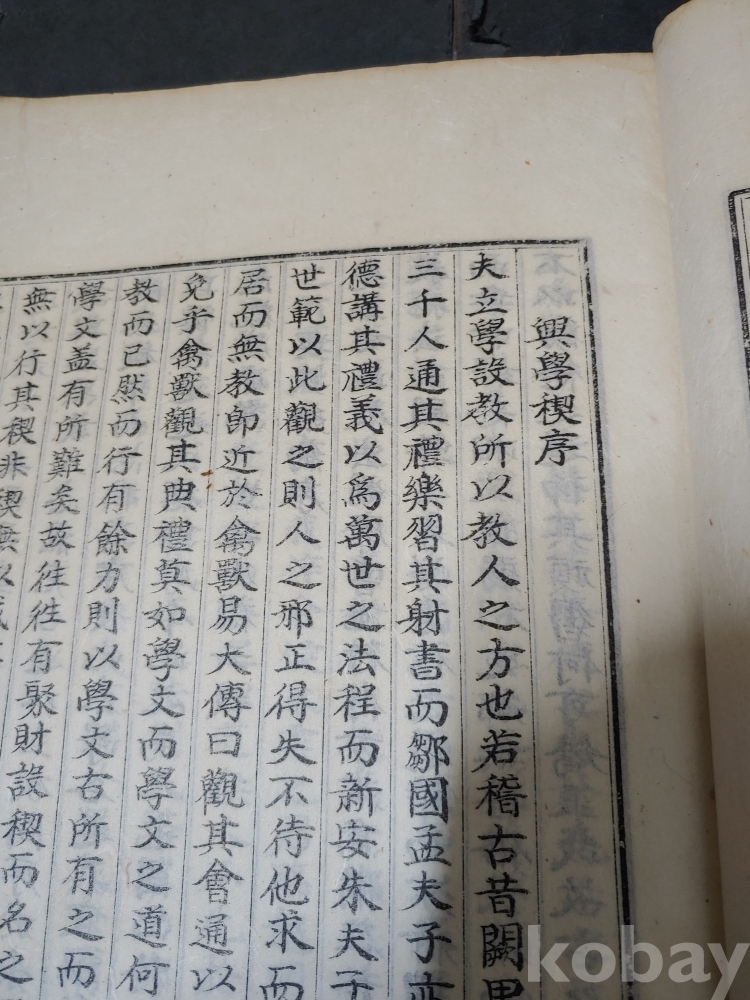 興學稧序
夫立學設教所以教人之方也若稽古昔闕里
三千人通其禮樂習其射書而鄒國孟夫子亦
德講其禮義以爲萬世之法程而新安朱夫子
世範以此觀之則人之邪正得失不待他求而
居而無教卽近於禽獸易大傳曰觀其會通以
免乎禽獸觀其典禮莫如學文而學文之道何
教而已然而行有餘力則以學文古所有之而
學文盖有所難矣故徃徃有聚財設稧而名之
無以行其稧非稧無以
kobay